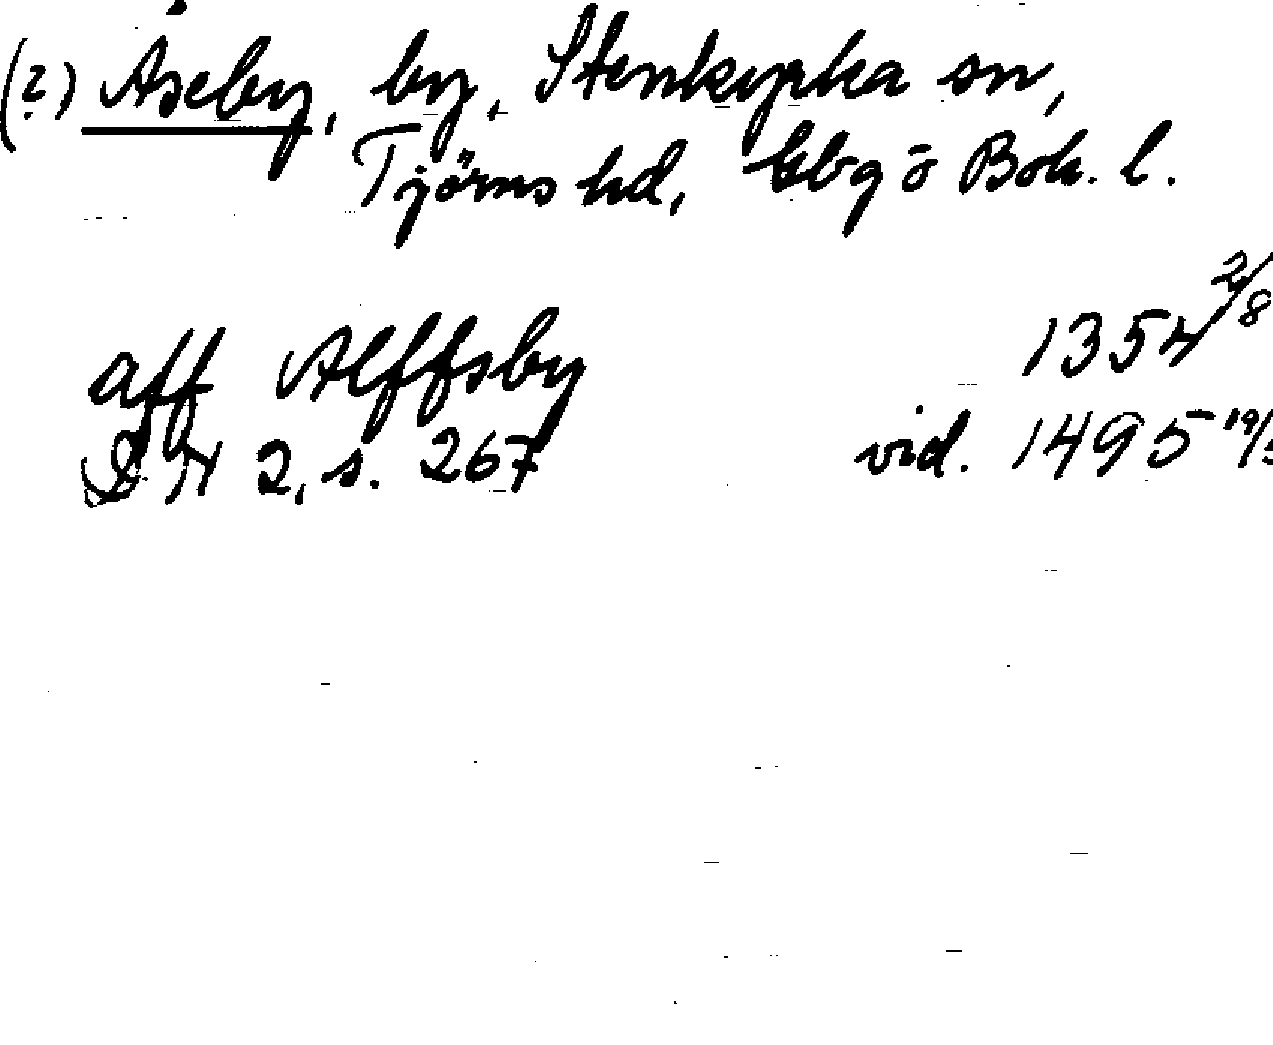 (?) Äseby, by, Stenkyrka sn,
Tjörns hd, Gbg o Boh. l.
aff Alffsby 1354 2/8
DN 2, s. 267 vid. 1495 19/5